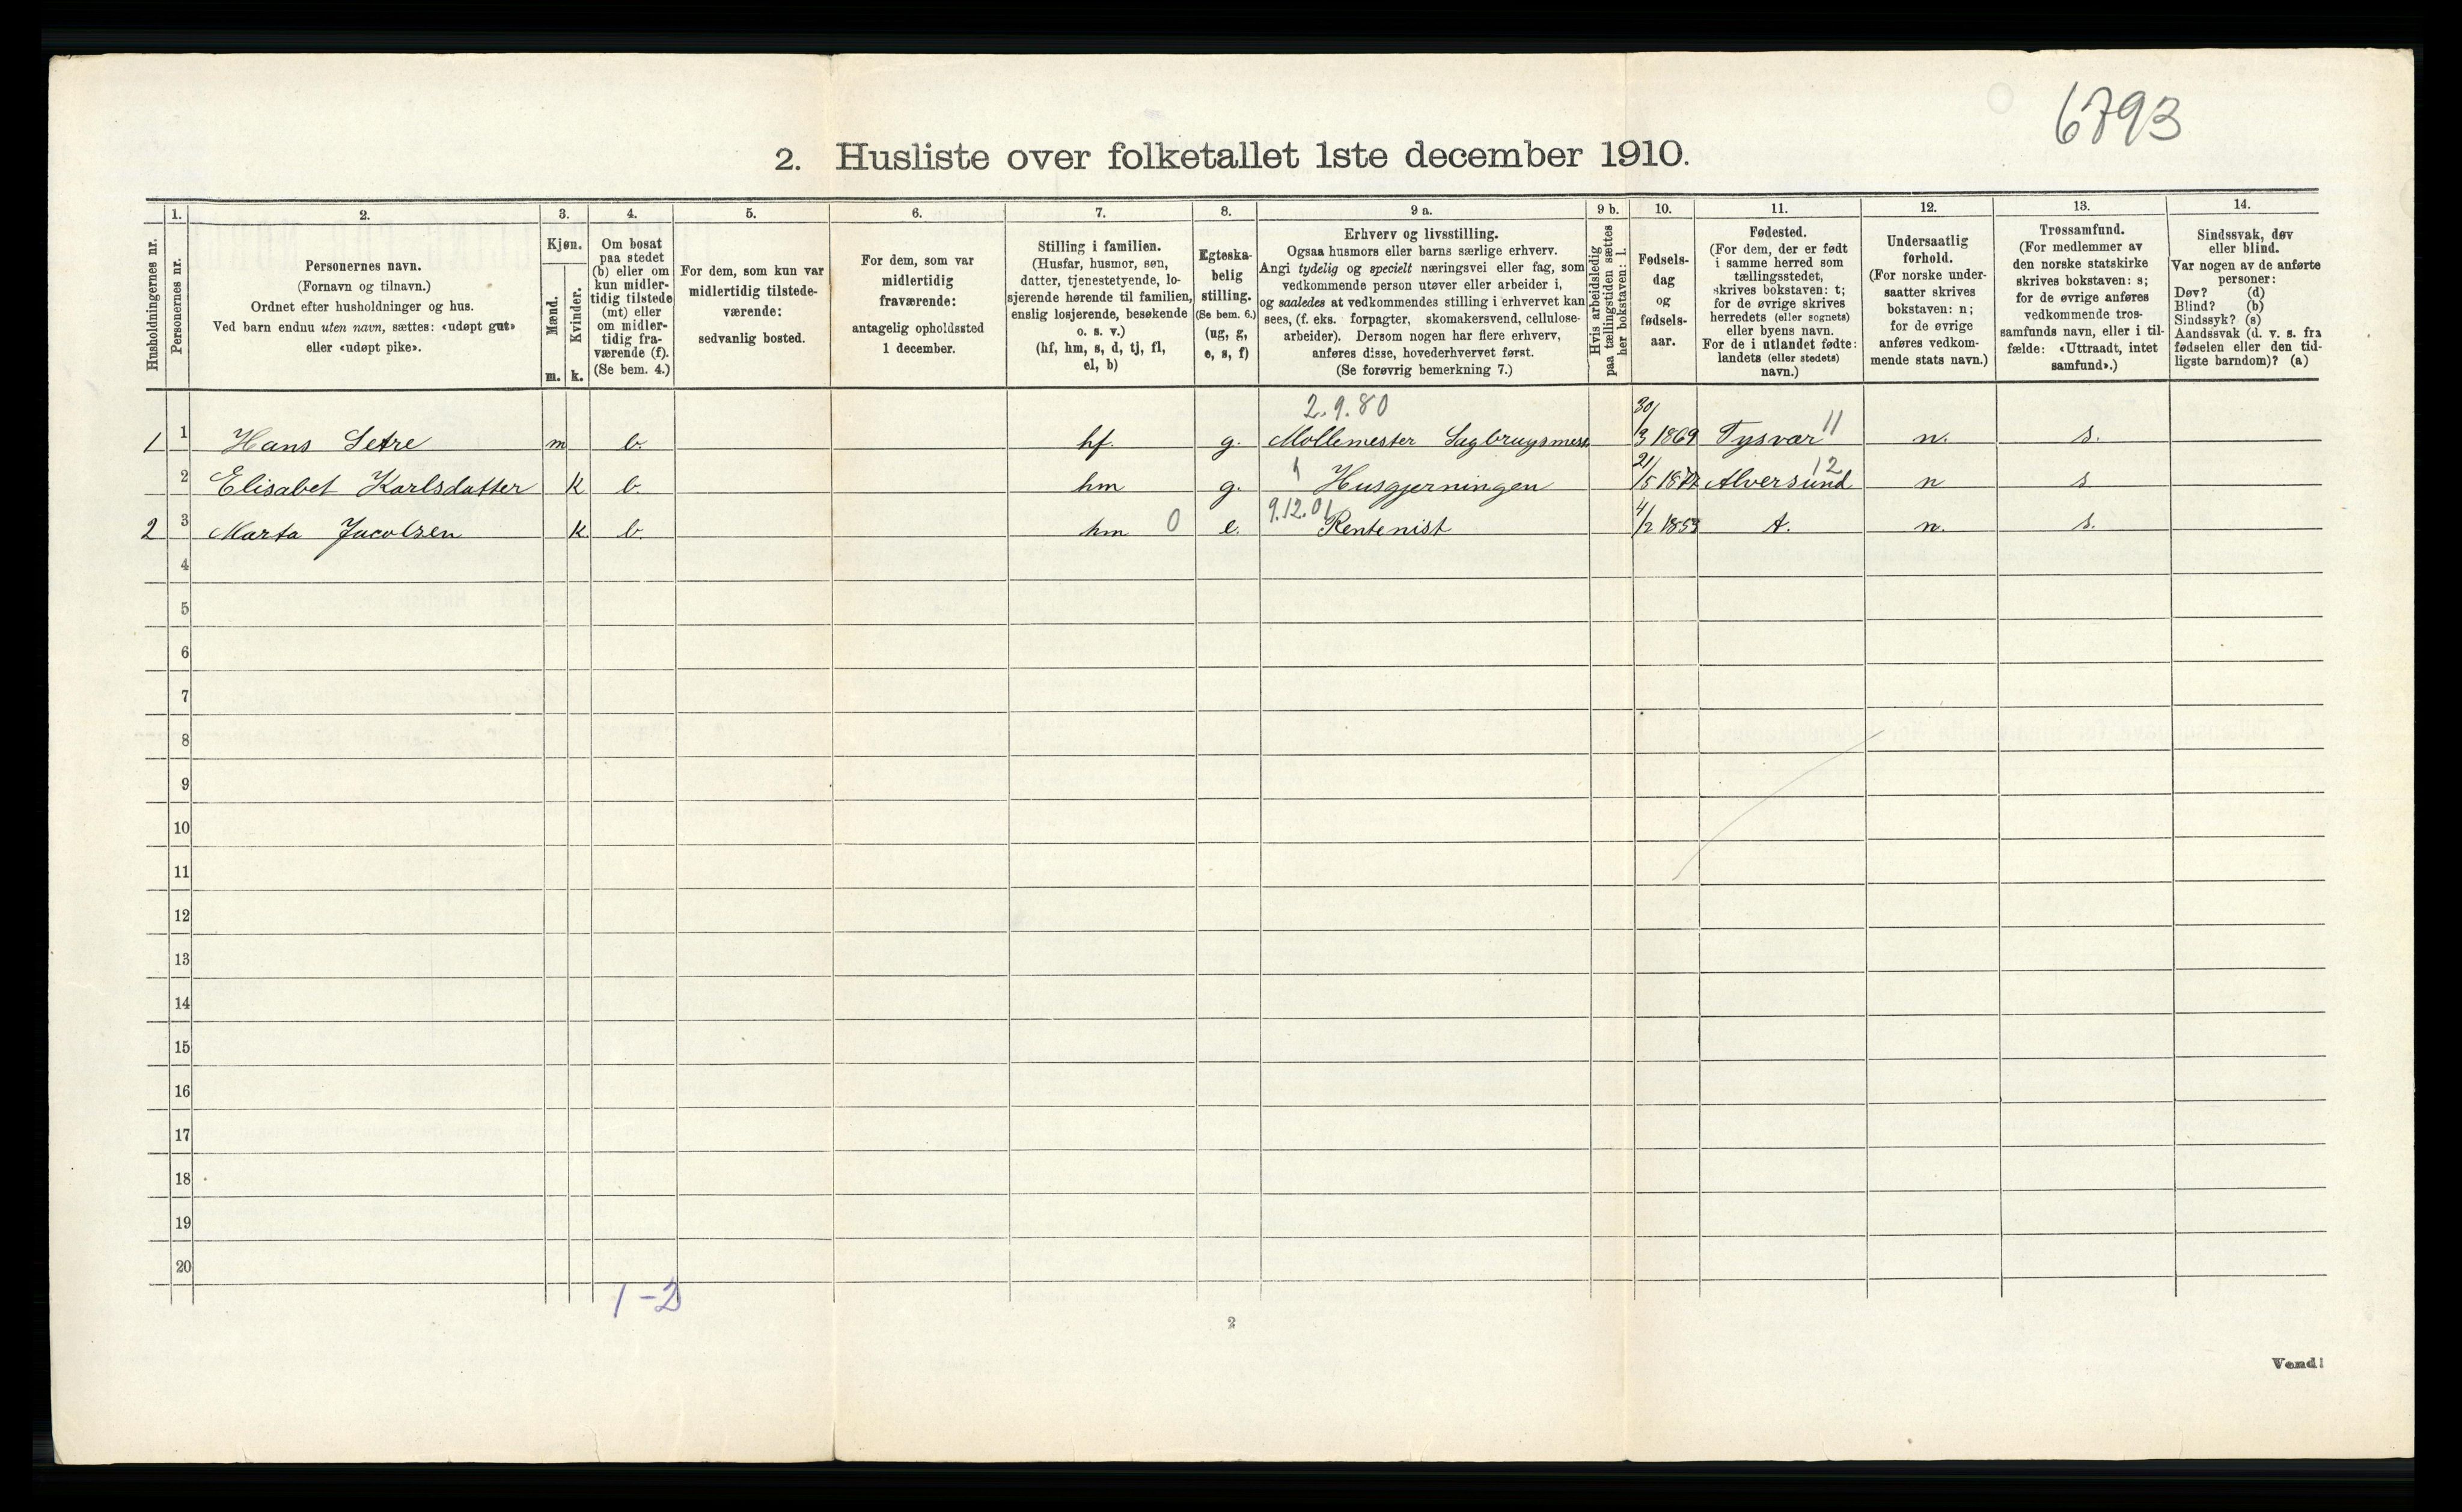 6793
2. Husliste over folketallet 1ste december 1910.
Husholdningernes nr.
1.
Personernes nr.
2.
Personernes navn.
(Fornavn og tilnavn.)
Ordnet efter husholdninger og hus.
Ved barn endnu uten navn, sættes: «udøpt gut»
eller «udøpt pike».
3.
Kjøn.
Mænd.
Kvinder.
m. k.
4.
Om bosat
paa stedet
(b) eller om
kun midler-
tidig tilstede
(mt) eller
om midler-
tidig fra-
værende (f).
(Se bem. 4.)
5.
For dem, som kun var
midlertidig tilstede-
værende:
sedvanlig bosted.
6.
For dem, som var
midlertidig
fraværende:
antagelig opholdssted
1 december.
7.
Stilling i familien.
(Husfar, husmor, søn,
datter, tjenestetyende, lo-
sjerende hørende til familien,
enslig losjerende, besøkende
o. s. v.)
(hf, hm, s, d, tj, fl,
el, b)
8.
Egteska-
belig
stilling.
(Se bem. 6.)
(ug, g,
e, s, f)
9 a.
Erhverv og livsstilling.
Ogsaa husmors eller barns særlige erhverv.
Angi tydelig og specielt næringsvei eller fag, som
vedkommende person utøver eller arbeider i,
og saaledes at vedkommendes stilling i erhvervet kan
sees, (f. eks. forpagter, skomakersvend, cellulose-
arbeider). Dersom nogen har flere erhverv,
anføres disse, hovederhvervet først.
(Se forøvrig bemerkning 7.)
9 b.
Hvis arbeidsledig
paa tællingstiden sættes
her bokstaven: l.
10.
Fødsels-
dag
og
fødsels-
aar.
11.
Fødested.
(For dem, der er født
i samme herred som
tællingsstedet,
skrives bokstaven: t;
for de øvrige skrives
herredets (eller sognets)
eller byens navn.
For de i utlandet fødte:
landets (eller stedets)
navn.)
12.
Undersaatlig
forhold.
(For norske under-
saatter skrives
bokstaven: n;
for de øvrige
anføres vedkom-
mende stats navn.)
13.
Trossamfund.
(For medlemmer av
den norske statskirke
skrives bokstaven: s;
for de øvrige anføres
vedkommende tros-
samfunds navn, eller i til-
fælde: «Uttraadt, intet
samfund».)
14.
Sindssvak, døv
eller blind.
Var nogen av de anførte
personer:
Døv? (d)
Blind? (b)
Sindssyk? (s)
Aandssvak (d. v. s. fra
fødselen eller den tid-
ligste barndom)? (a)
2.9.80
1 1 Hans Setre m b. hf. g. Møllemester Sagbrugsmest 30/3 1869 Tysvær 11 n. s.
2 Elisabet Karlsdatter k b. hm g. Husgjerningen 21/5 Alversund 12 n s
2 3 Marta Jacobsen k. b. hm 0 e. 9.12.01 Rentenist 4/2 1853 t. n. s.
4
5
6
7
8
9
10
11
12
13
14
15
16
17
18
19
20
1-2
2
Vend!